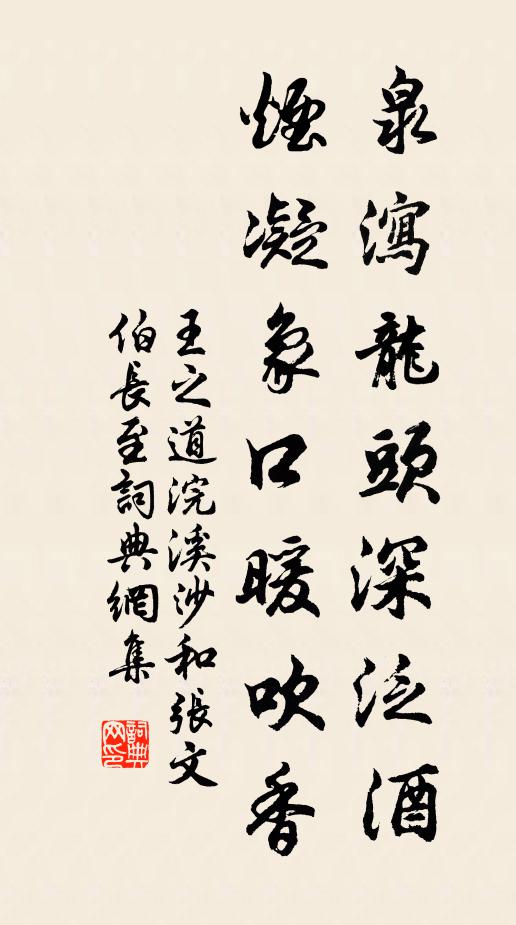 泉瀉龍頭深泛酒
煙凝象口暖吹香
王之道浣溪沙和張文
伯長至詞典網集
詞典网印